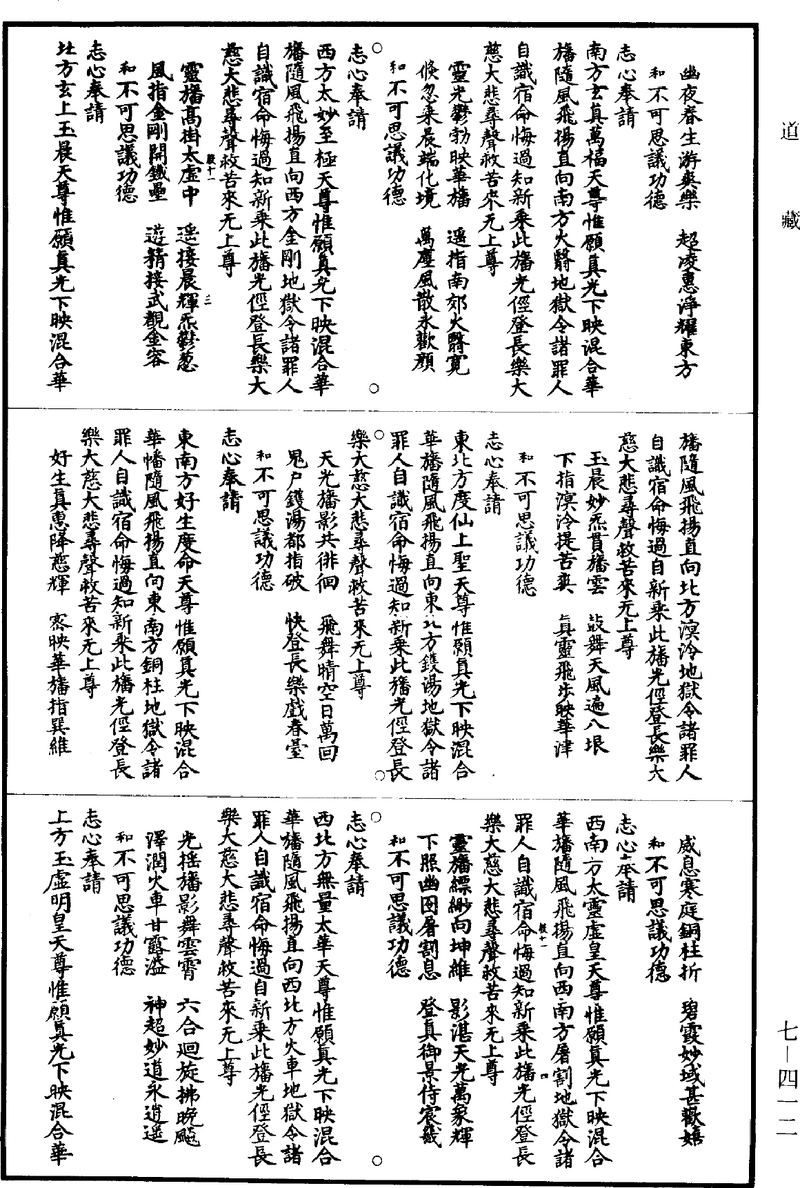 道藏
幽夜春生游奭樂　超凌惠淨耀東方
和不可思議功德
志心奉請
南方玄真萬福天尊惟願真光下映混合華
旛隨風飛揚直向南方火翳地獄令諸罪人
自識宿命悔過知新乘此旛光徑登長樂大
慈大悲尋聲救苦來无上尊
靈光鬱勃映華旛　遥指南郊火翳寛
倏忽來晨端化境　萬塵風散永歡顔
和不可思議功德
志心奉請
西方太妙至極天尊惟願真光下映混合華
旛隨風飛揚直向西方金剛地獄令諸罪人
自識宿命悔過知新乘此旛光徑登長樂大
慈大悲尋聲救苦來无上尊
靈旛髙掛太虛中　遥接晨輝炁鬱葱
風指金剛開鐵壘　遊籍接武覩金容
和不可思議功德
志心奉請
北方玄上玉晨天尊惟願真光下映混合華
旛隨風飛揚直向北方溟泠地獄令諸罪人
自識宿命悔過自新乘此旛光徑登長樂大
慈大悲尋聲救苦來无上尊
玉晨妙炁貫旛雲　鼓舞天風遍八垠
下指溟泠提苦爽　真靈飛步映華津
和不可思議功德
志心奉請
東北方度仙上聖天尊惟願真光下映混合
華旛隨風飛揚直向東北方鑊湯地獄令諸
罪人自識宿命悔過知新乘此旛光徑登長
樂大慈大悲尋聲救苦來无上尊
天光旛影共徘徊　飛舞晴空日萬回
鬼户鑊湯都指破　快登長樂戲春臺
和不可思議功德
志心奉請
東南方好生度命天尊惟願真光下映混合
華幡隨風飛揚直向東南方銅柱地獄令諸
罪人自識宿命悔過知新乘此旛光徑登長
樂大慈大悲尋聲救苦來无上尊
好生真惠降慈輝　密映華旛指巽維
威息寒庭銅柱折　碧霞妙域甚歡嬉
和不可思議功德
志心奉請
西南方太靈虛皇天尊惟願真光下映混合
華旛隨風飛揚直向西南方屠割地獄令諸
罪人自識宿命悔過知新乘此旛光徑登長
樂大慈大悲尋聲救苦來无上尊
靈旛縹緲向坤維　影湛天光萬象輝
下照幽囹屠割息　登真御景侍宸畿
和不可思議功德
志心奉請
西北方無量太華天尊惟願真光下映混合
華旛隨風飛揚直向西北方火車地獄令諸
罪人自識宿命悔過自新乘此旛光徑登長
樂大慈大悲尋聲救苦來无上尊
光揺旛影舞雲霄　六合迴旋拂晚飈
澤潤火車甘露溢　神超妙道永逍遥
和不可思議功德
志心奉請
上方玉虛明皇天尊惟願真光下映混合華
七—四一二